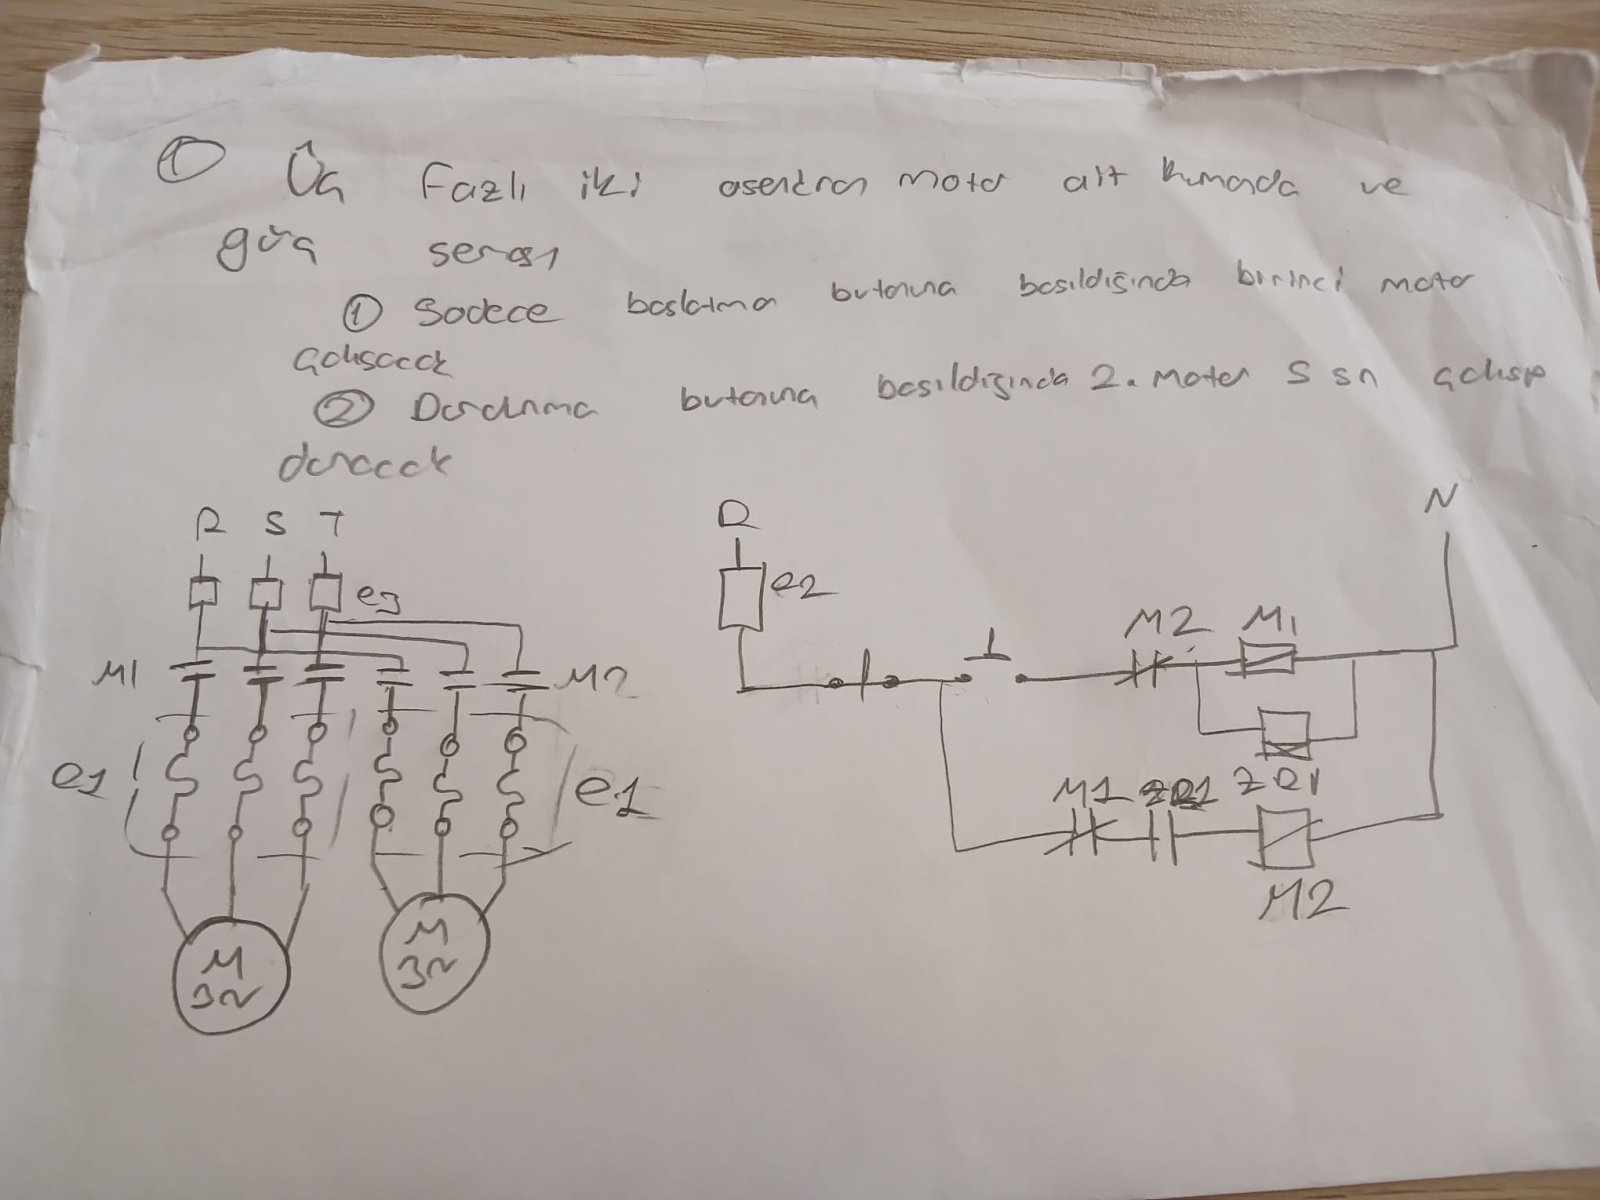 ① Üç Fazlı iki asenkron motor ait kumada ve
güç serası
① Sadece baslatma butonuna basıldığında birinci motor
çalısacak
② Durdurma butonuna basıldığında 2. Motor 5 sn çalısıp
duracak
R S T
R
N
e2
e3
M2 M1
M1 M2
e1 e1
ZR1
M1 ZR1
M2
M
3~
M
3~